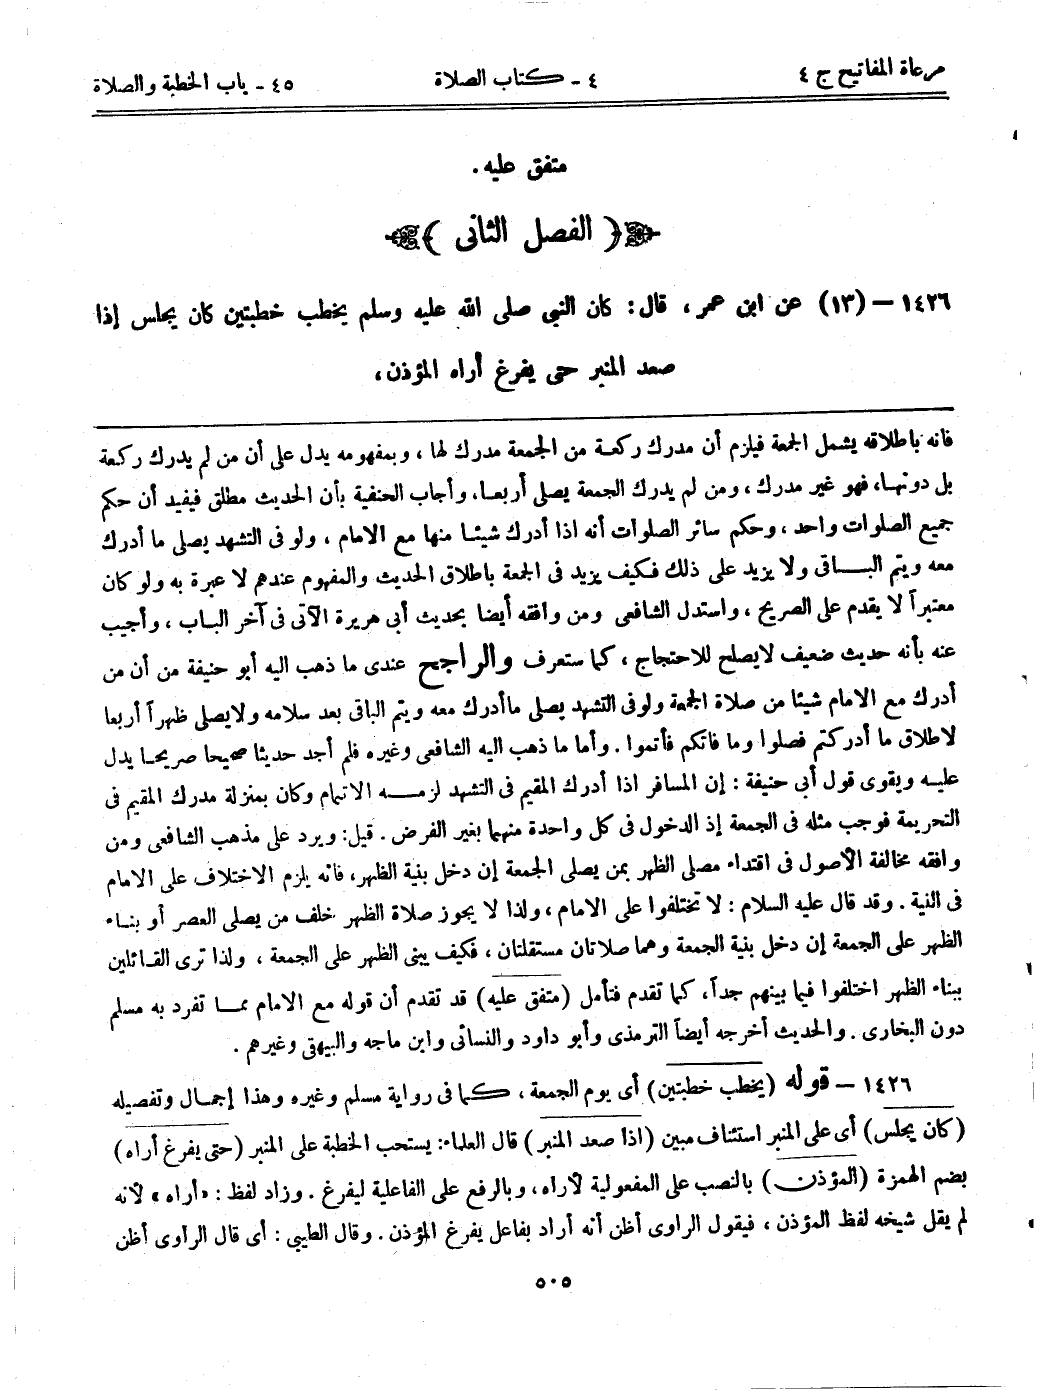 مرعاة المفاتيح ج ٤ ٤ - كتاب الصلاة ٤٥ - باب الخطبة والصلاة
متفق عليه .
( الفصل الثانى )
١٤٢٦ – (١٣) عن ابن عمر ، قال : كان النبي صلى الله عليه وسلم يخطب خطبتين كان يجلس إذا
صعد المنبر حتى يفرغ أراه المؤذن ،
فانه باطلاقه يشمل الجمعة فيلزم أن مدرك ركعة من الجمعة مدرك لها ، وبمفهومه يدل على أن من لم يدرك ركعة
بل دونها، فهو غير مدرك ، ومن لم يدرك الجمعة يصلى أربعا. وأجاب الحنفية بأن الحديث مطلق فيفيد أن حكم
جميع الصلوات واحد ، وحكم سائر الصلوات أنه اذا أدرك شيئا منها مع الامام ، ولو فى التشهد يصلى ما أدرك
معه ويتم الباقى ولا يزيد على ذلك فكيف يزيد فى الجمعة باطلاق الحديث والمفهوم عندهم لا عبرة به ولو كان
معتبراً لا يقدم على الصريح ، واستدل الشافعى ومن وافقه أيضا بحديث أبى هريرة الآتى فى آخر الباب ، وأجيب
عنه بأنه حديث ضعيف لايصلح للاحتجاج ، كما ستعرف والراجح عندى ما ذهب اليه أبو حنيفة من أن من
أدرك مع الامام شيئا من صلاة الجمعة ولوفى التشهد يصلى ماأدرك معه ويتم الباقى بعد سلامه ولايصلى ظهراً أربعا
لاطلاق ما أدركتم فصلوا وما فاتكم فأتموا . وأما ما ذهب اليه الشافعى وغيره فلم أجد حديثا صحيحا صريحا يدل
عليه ويقوى قول أبى حنيفة : إن المسافر اذا أدرك المقيم فى التشهد لزمه الاتمام وكان بمنزلة مدرك المقيم فى
التحريمة فوجب مثله فى الجمعة إذ الدخول فى كل واحدة منهما بغير الفرض . قيل: ويرد على مذهب الشافعى ومن
وافقه مخالفة الأصول فى اقتداء مصلى الظهر بمن يصلى الجمعة إن دخل بنية الظهر، فانه يلزم الاختلاف على الامام
فى النية . وقد قال عليه السلام : لا تختلفوا على الامام ، ولذا لا يجوز صلاة الظهر خلف من يصلى العصر أو بناء
الظهر على الجمعة إن دخل بنية الجمعة وهما صلاتان مستقلتان ، فكيف يبنى الظهر على الجمعة ، ولذا ترى القائلين
ببناء الظهر اختلفوا فيما بينهم جداً، كما تقدم فتأمل (متفق عليه) قد تقدم أن قوله مع الامام مما تفرد به مسلم
دون البخارى . والحديث أخرجه أيضاً الترمذى وأبو داود والنسائى وابن ماجه والبيهقى وغيرهم .
١٤٢٦ – قوله (يخطب خطبتين) أى يوم الجمعة ، كما فى رواية مسلم وغيره وهذا إجمال وتفصيله
(كان يجلس) أى على المنبر استئناف مبين (اذا صعد المنبر) قال العلماء: يستحب الخطبة على المنبر (حتى يفرغ أراه)
بضم الهمزة (المؤذن) بالنصب على المفعولية لأراه، وبالرفع على الفاعلية ليفرغ . وزاد لفظ : «أراه» لأنه
لم يقل شيخه لفظ المؤذن ، فيقول الراوى أظن أنه أراد بفاعل يفرغ المؤذن . وقال الطيبى : أى قال الراوى أظن
٥٠٥